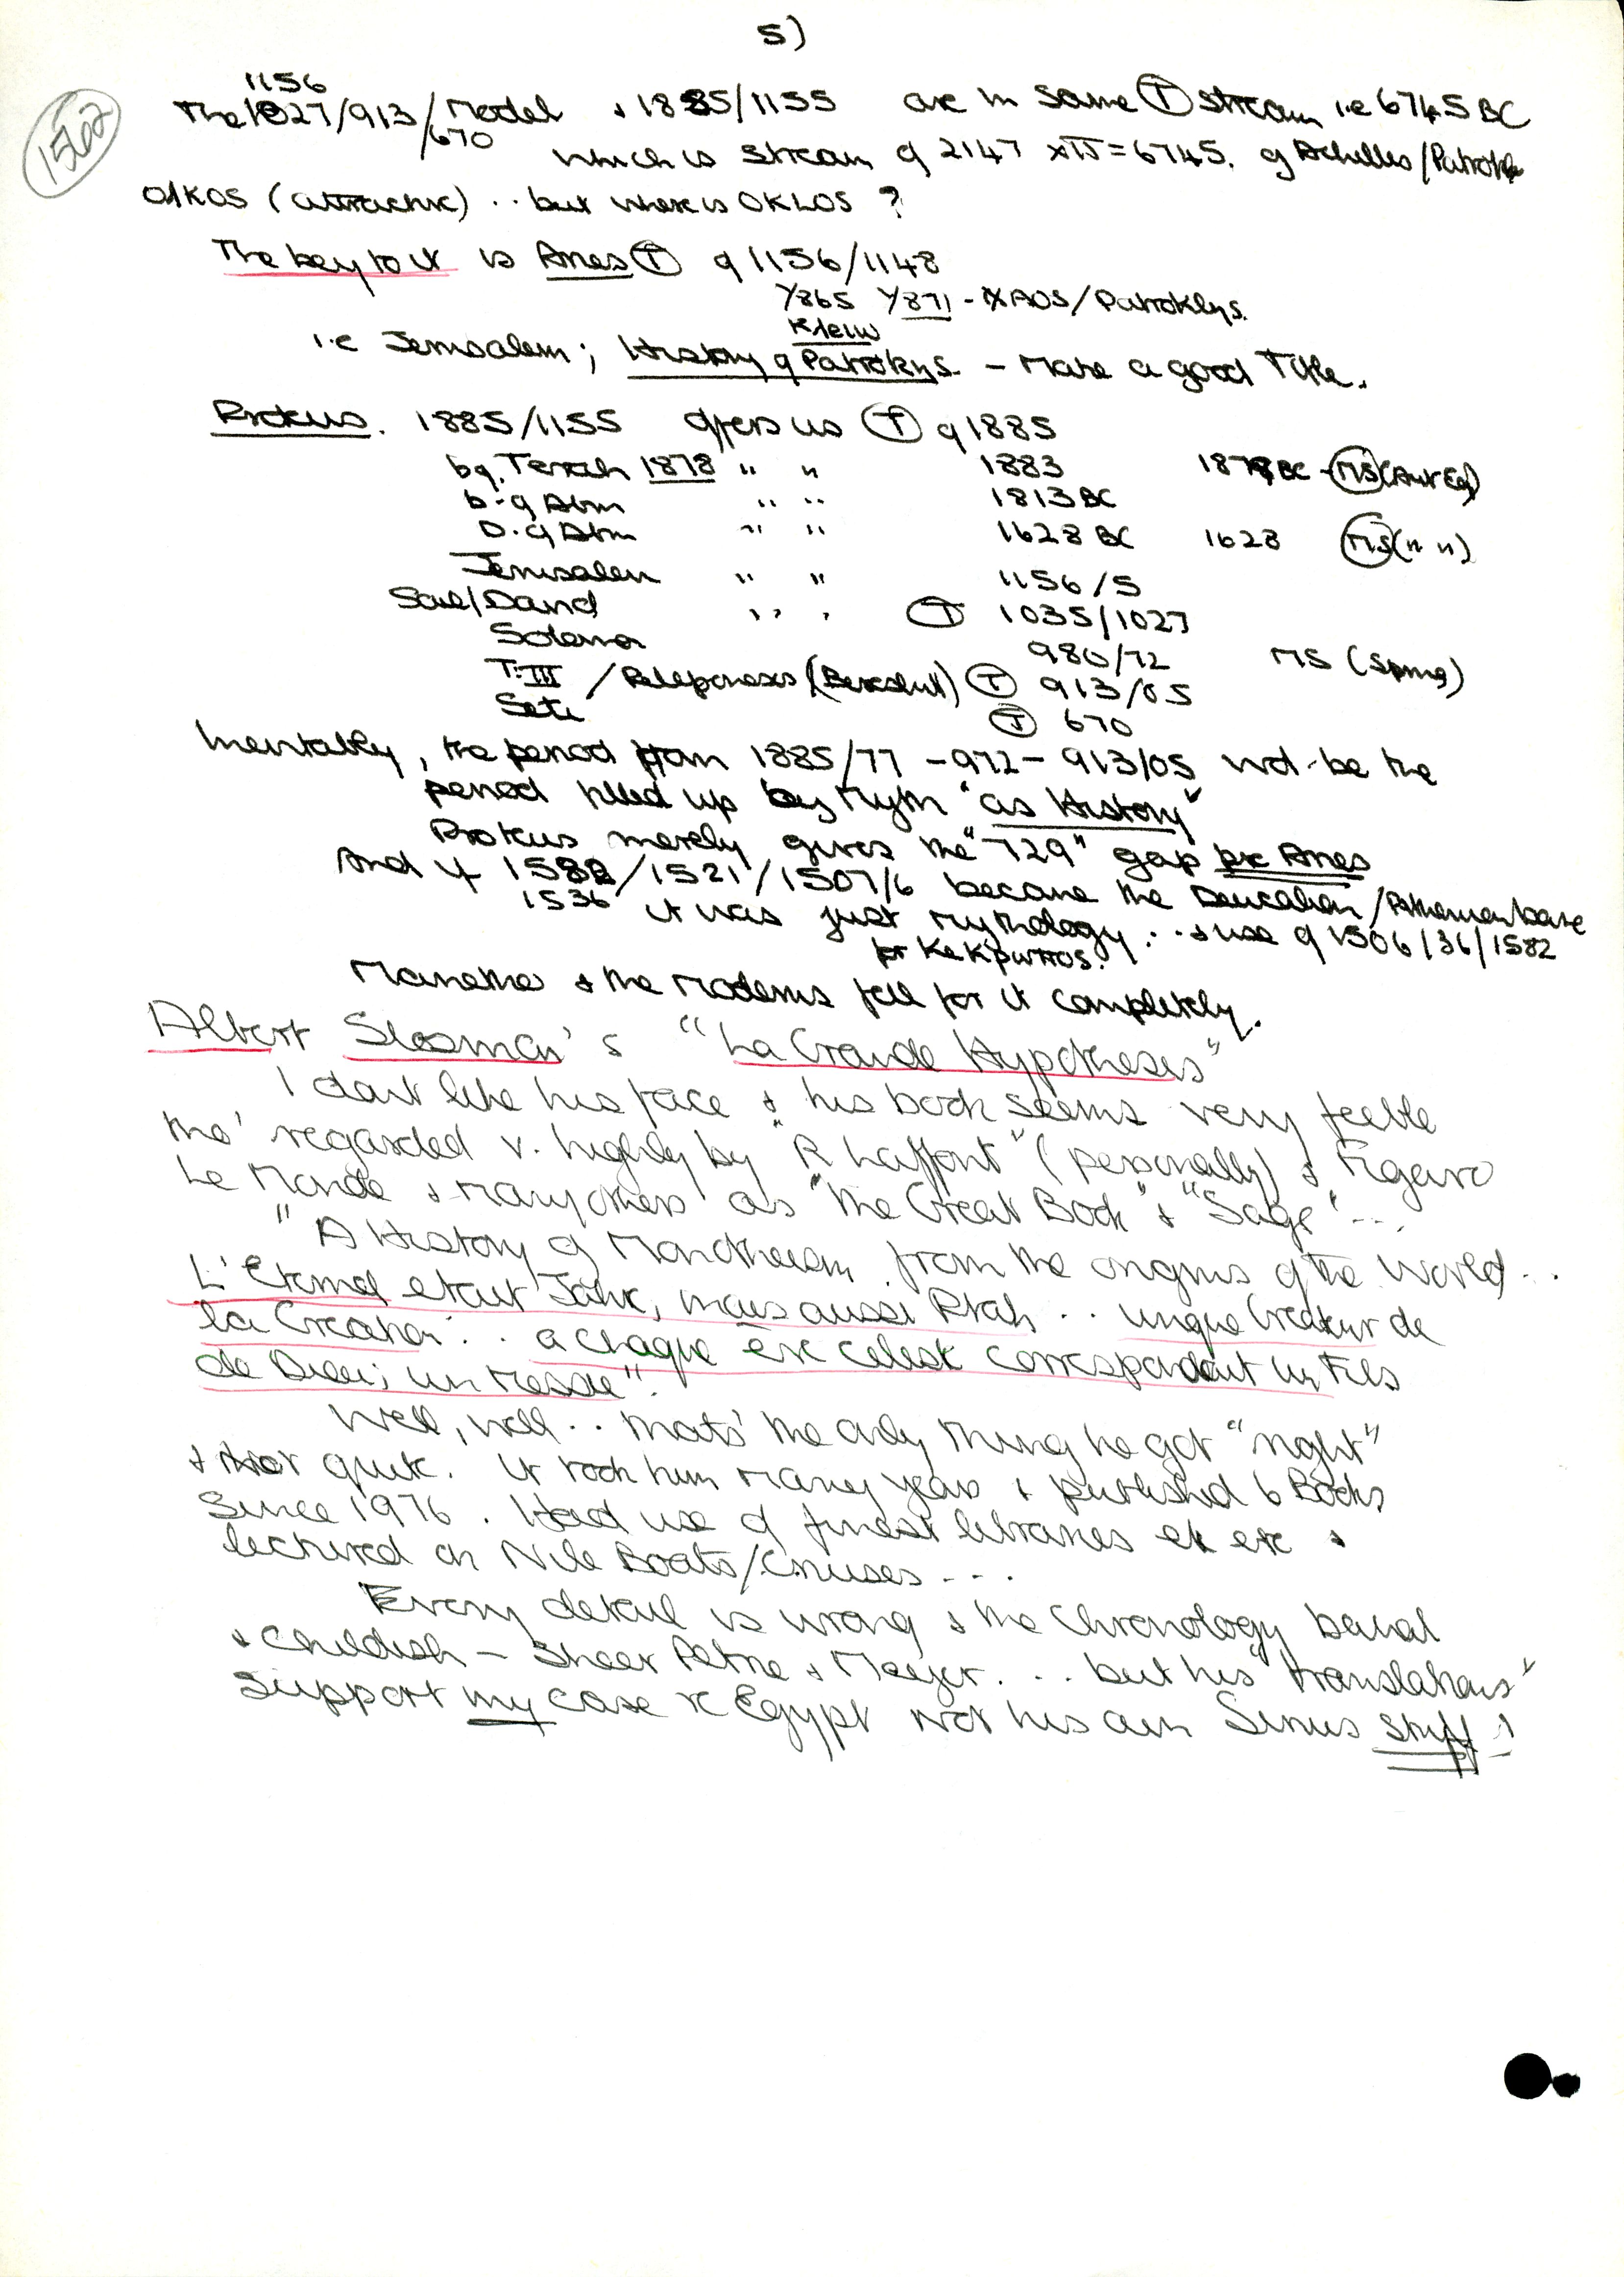 5)
1562
1156
The 1027/913/Model & 1885/1155 are in same Ⓣ stream i.e 6745 BC
/670 which is stream of 2147 xπ = 6745. of Achilles/Patrok
OIKOS (attractive) .. but where is OKLOS ?
The key to it is Ares Ⓣ of 1156/1148
Y865 Y871 - XAOS/Patroklys.
Klew
i.e Jerusalem; History of Patroklys. - Make a good Title.
Proteus. 1885/1155 offers us Ⓣ of 1885
bq. Terah 1878 " " 1883 1878 BC - MS
b. of Abm " " 1813 BC
D. of Abm " " 1628 BC 1628 MS (" ")
Jerusalem " " 1156/5
Saul/David " " Ⓣ 1035/1027
Solomon 980/72 MS (Spring)
T.III / Peleponeses Ⓣ 913/05
Seti Ⓣ 670
Inevitably, the period from 1885/77 - 972 - 913/05 wd. be the
period filled up by Myth "as History"
Proteus merely gives the "729" gap pre Ares
And if 1582/1521/1507/6 became the Deucalion/
1536 it was just mythology .. & use of 1506/36/1582
for KeKpwπos.
Manetho & the Moderns fell for it completely.
Albert Slosman's "La Grande Hypotheses"
I dont like his face & his book seems very feeble
tho' regarded v. highly by "R Laffont" (personally) & Figaro
Le Monde & many others as "the Great Book" & "Sage" ...
"A History of Monotheism from the origins of the World ..
L'Eternel etait Jahve, mais aussi Ptah .. unique Createur de
la Creation .. a chaque ère celeste correspondait un Fils
de Dieu; un Messie".
Well, well .. that's the only thing he got "right"
& not quite. It took him many years & published 6 Books
since 1976. Had use of finest libraries etc etc &
lectured on Nile Boats/Cruises - - .
Every detail is wrong & the Chronology banal
& Childish - Sheer Petrie & Meyer. .. but his "translations"
support my case re Egypt not his own Sirius stuff!